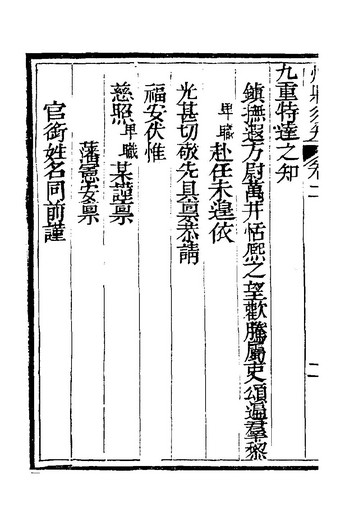 州縣須知 卷二
二
九重特達之知
鎮撫遐方尉萬井恬熈之望歡騰屬吏頌遍羣黎
卑職赴任未遑依
光甚切敬先具稟恭請
福安伏惟
慈照卑職某謹稟
藩憲安稟
官銜姓名同前謹